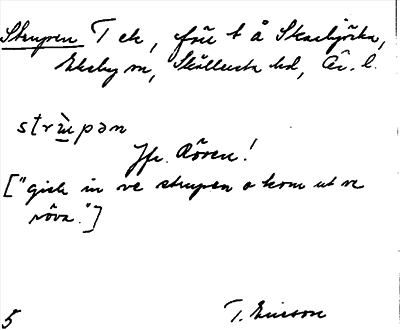 Strupen T ek, fõre t å Skarbjörka,
Ekeby sn, Skölleck hd, Ör. l.
strùpən
Jfr. Röven!
["gick in ve strupen o kom ut ve
röva."]
5 T. Ericson